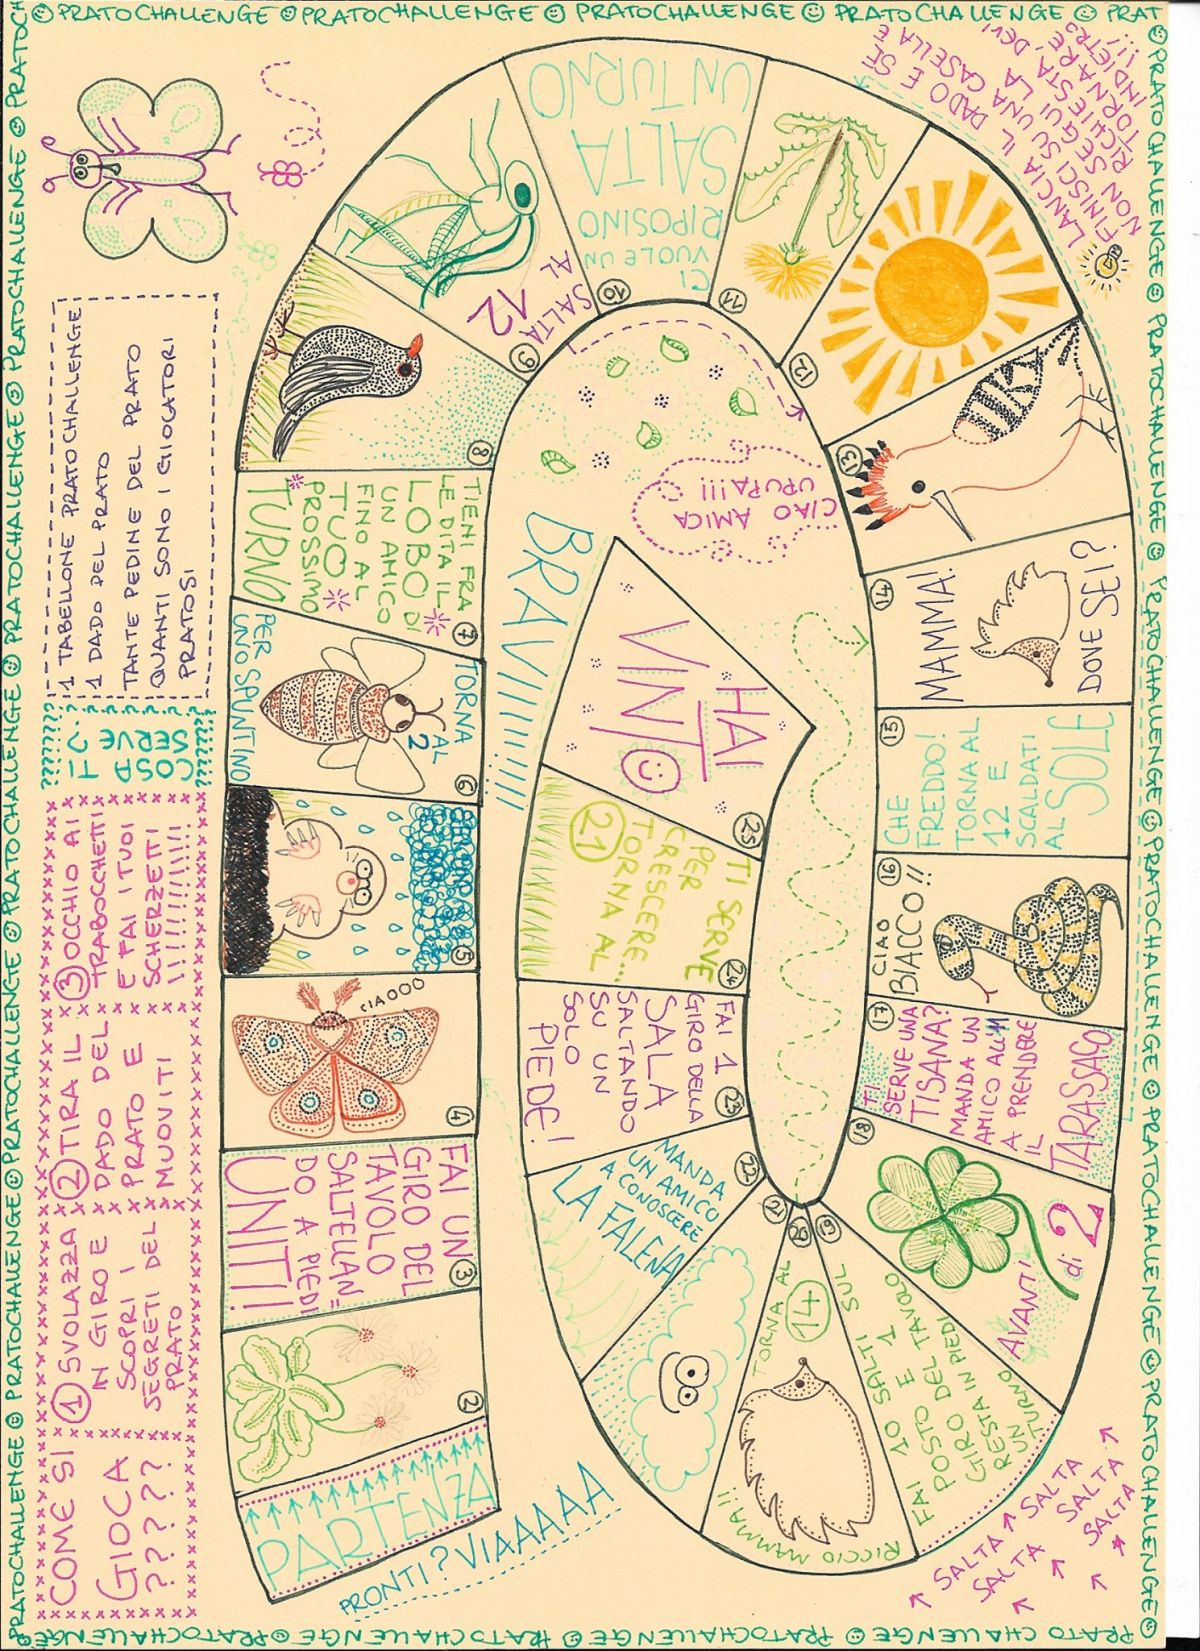 PRATOCHALLENGE ☺ PRATOCHALLENGE ☺ PRATOCHALLENGE ☺ PRATOCHALLENGE ☺ PRAT
COME SI
GIOCA
??????
① SVOLAZZA
IN GIRO E
SCOPRI I
SEGRETI DEL
PRATO
② TIRA IL
DADO DEL
PRATO E
MUOVITI
③ OCCHIO AI
TRABOCCHETTI
E FAI I TUOI
SCHERZETTI
COSA TI
SERVE?
1 TABELLONE PRATOCHALLENGE
1 DADO DEL PRATO
TANTE PEDINE DEL PRATO
QUANTI SONO I GIOCATORI
PRATOSI
LANCIA IL DADO E SE
FINISCI SU UNA CASELLA E
NON SEGUI LA
RICHIESTA, DEVI
TORNARE
INDIETRO
!!!
PRONTI? VIAAAAA
PARTENZA
2
3
FAI UN
GIRO DEL
TAVOLO
SALTELLAN=
DO A PIEDI
UNITI!
4
CIAOOO
5
6
TORNA
AL
2
PER
UNO SPUNTINO
7
TIENI FRA
LE DITA IL
LOBO DI
UN AMICO
FINO AL
TUO
PROSSIMO
TURNO
8
9
SALTA
AL
12
10
CI
VUOLE UN
RIPOSINO
SALTA
UN TURNO
11
12
13
CIAO AMICA
UPUPA!!!
14
MAMMA!
DOVE SEI?
15
CHE
FREDDO!
TORNA AL
12 E
SCALDATI
AL SOLE
16
CIAO
BIACCO!!
17
TI
SERVE UNA
TISANA?
MANDA UN
AMICO ALL'11
A PRENDERE
IL
TARASSACO
18
AVANTI
di 2
19
FAI 10 SALTI SUL
POSTO E 1
GIRO DEL TAVOLO
RESTA IN PIEDI
UN TURNO
20
TORNA AL
14
RICCIO MAMMA!!
21
22
MANDA
UN AMICO
A CONOSCERE
LA FALENA
23
FAI 1
GIRO DELLA
SALA
SALTANDO
SU UN
SOLO
PIEDE!
24
TI SERVE
PER
CRESCERE...
TORNA AL
21
25
HAI
VINTO
BRAVI!!!!!!!!!!
SALTA SALTA
SALTA SALTA
SALTA